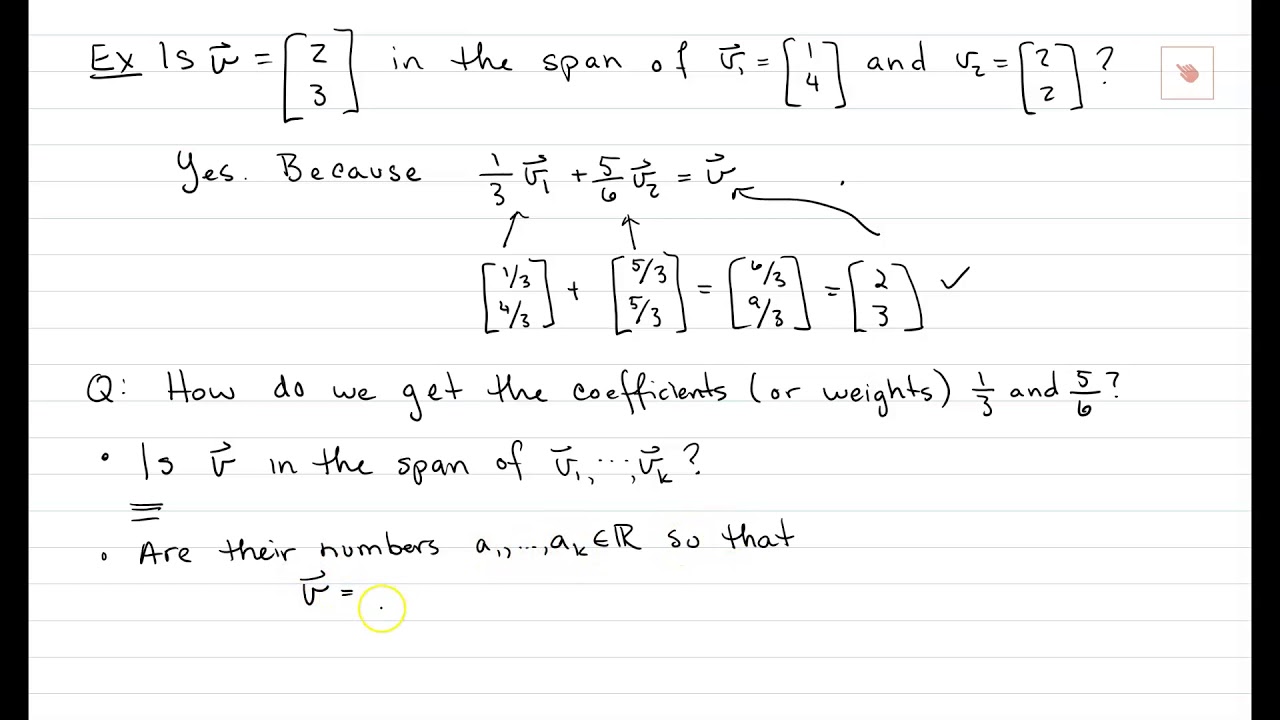 Ex Is v⃗ = [2 3] in the span of v⃗₁ = [1 4] and v₂ = [2 2] ?
Yes. Because 1/3 v⃗₁ + 5/6 v⃗₂ = v⃗
[1/3 4/3] + [5/3 5/3] = [6/3 9/3] = [2 3] ✓
Q: How do we get the coefficients (or weights) 1/3 and 5/6?
• Is v⃗ in the span of v⃗₁, ..., v⃗ₖ ?
≡
• Are their numbers a₁, ..., aₖ ∈ ℝ so that
v⃗ =